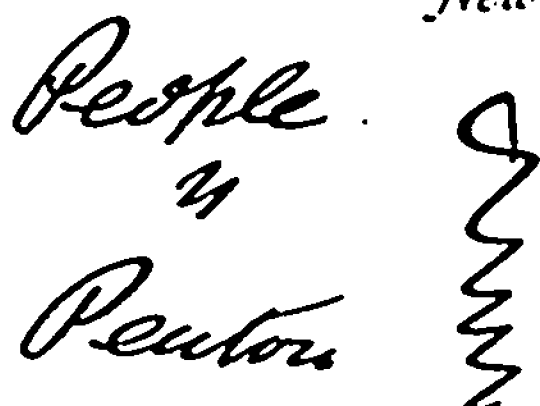 People
vs
Penton